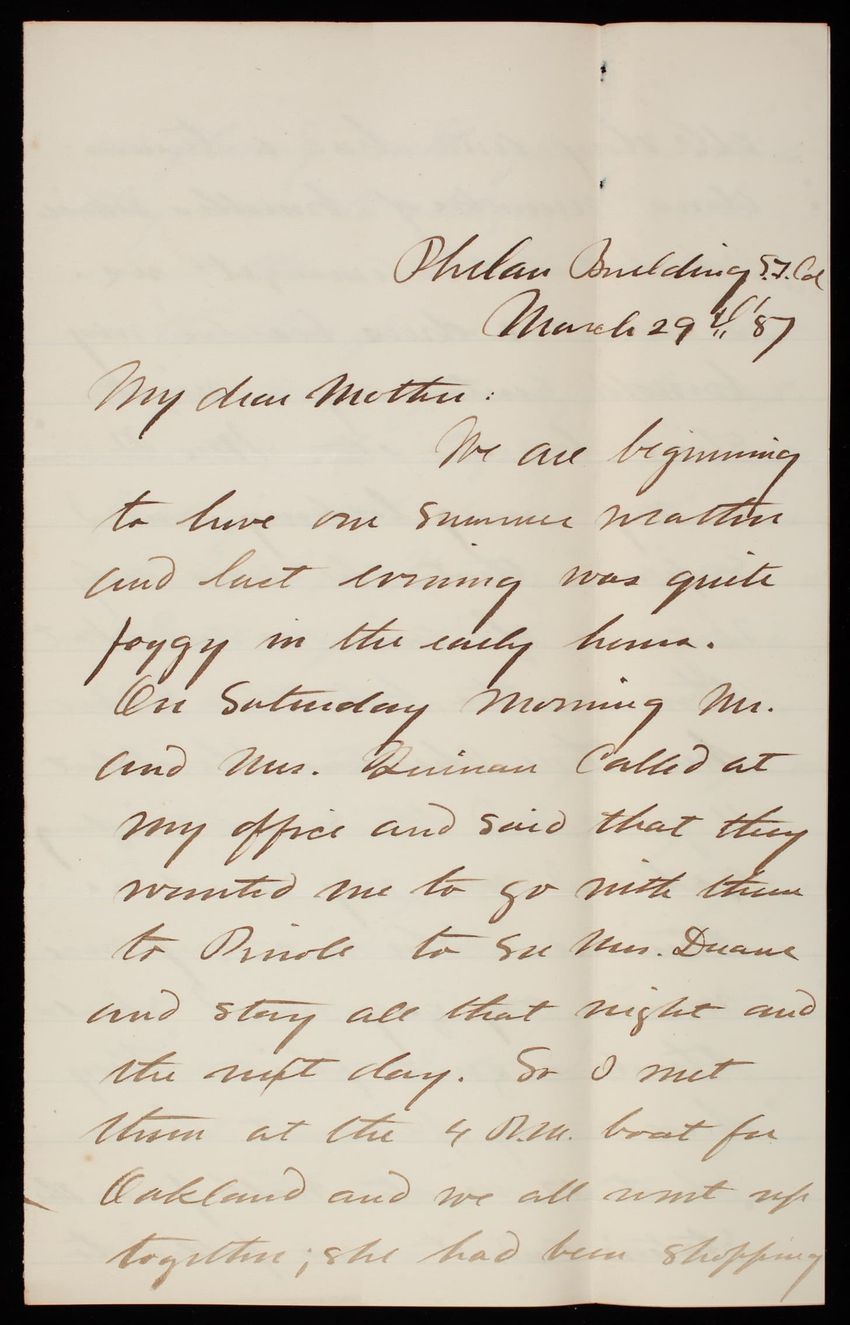 Phelan Building S.F. Cal
March 29th '87
My dear Mother:
We are beginning
to have our summer weather
and last evening was quite
foggy in the early hours.
On Saturday morning Mr.
and Mrs. Quinan called at
my office and said that they
wanted me to go with them
to Pinole to see Mrs. Duane
and stay all that night and
the next day. So I met
them at the 4 P.M. boat for
Oakland and we all went up
together; she had been shopping